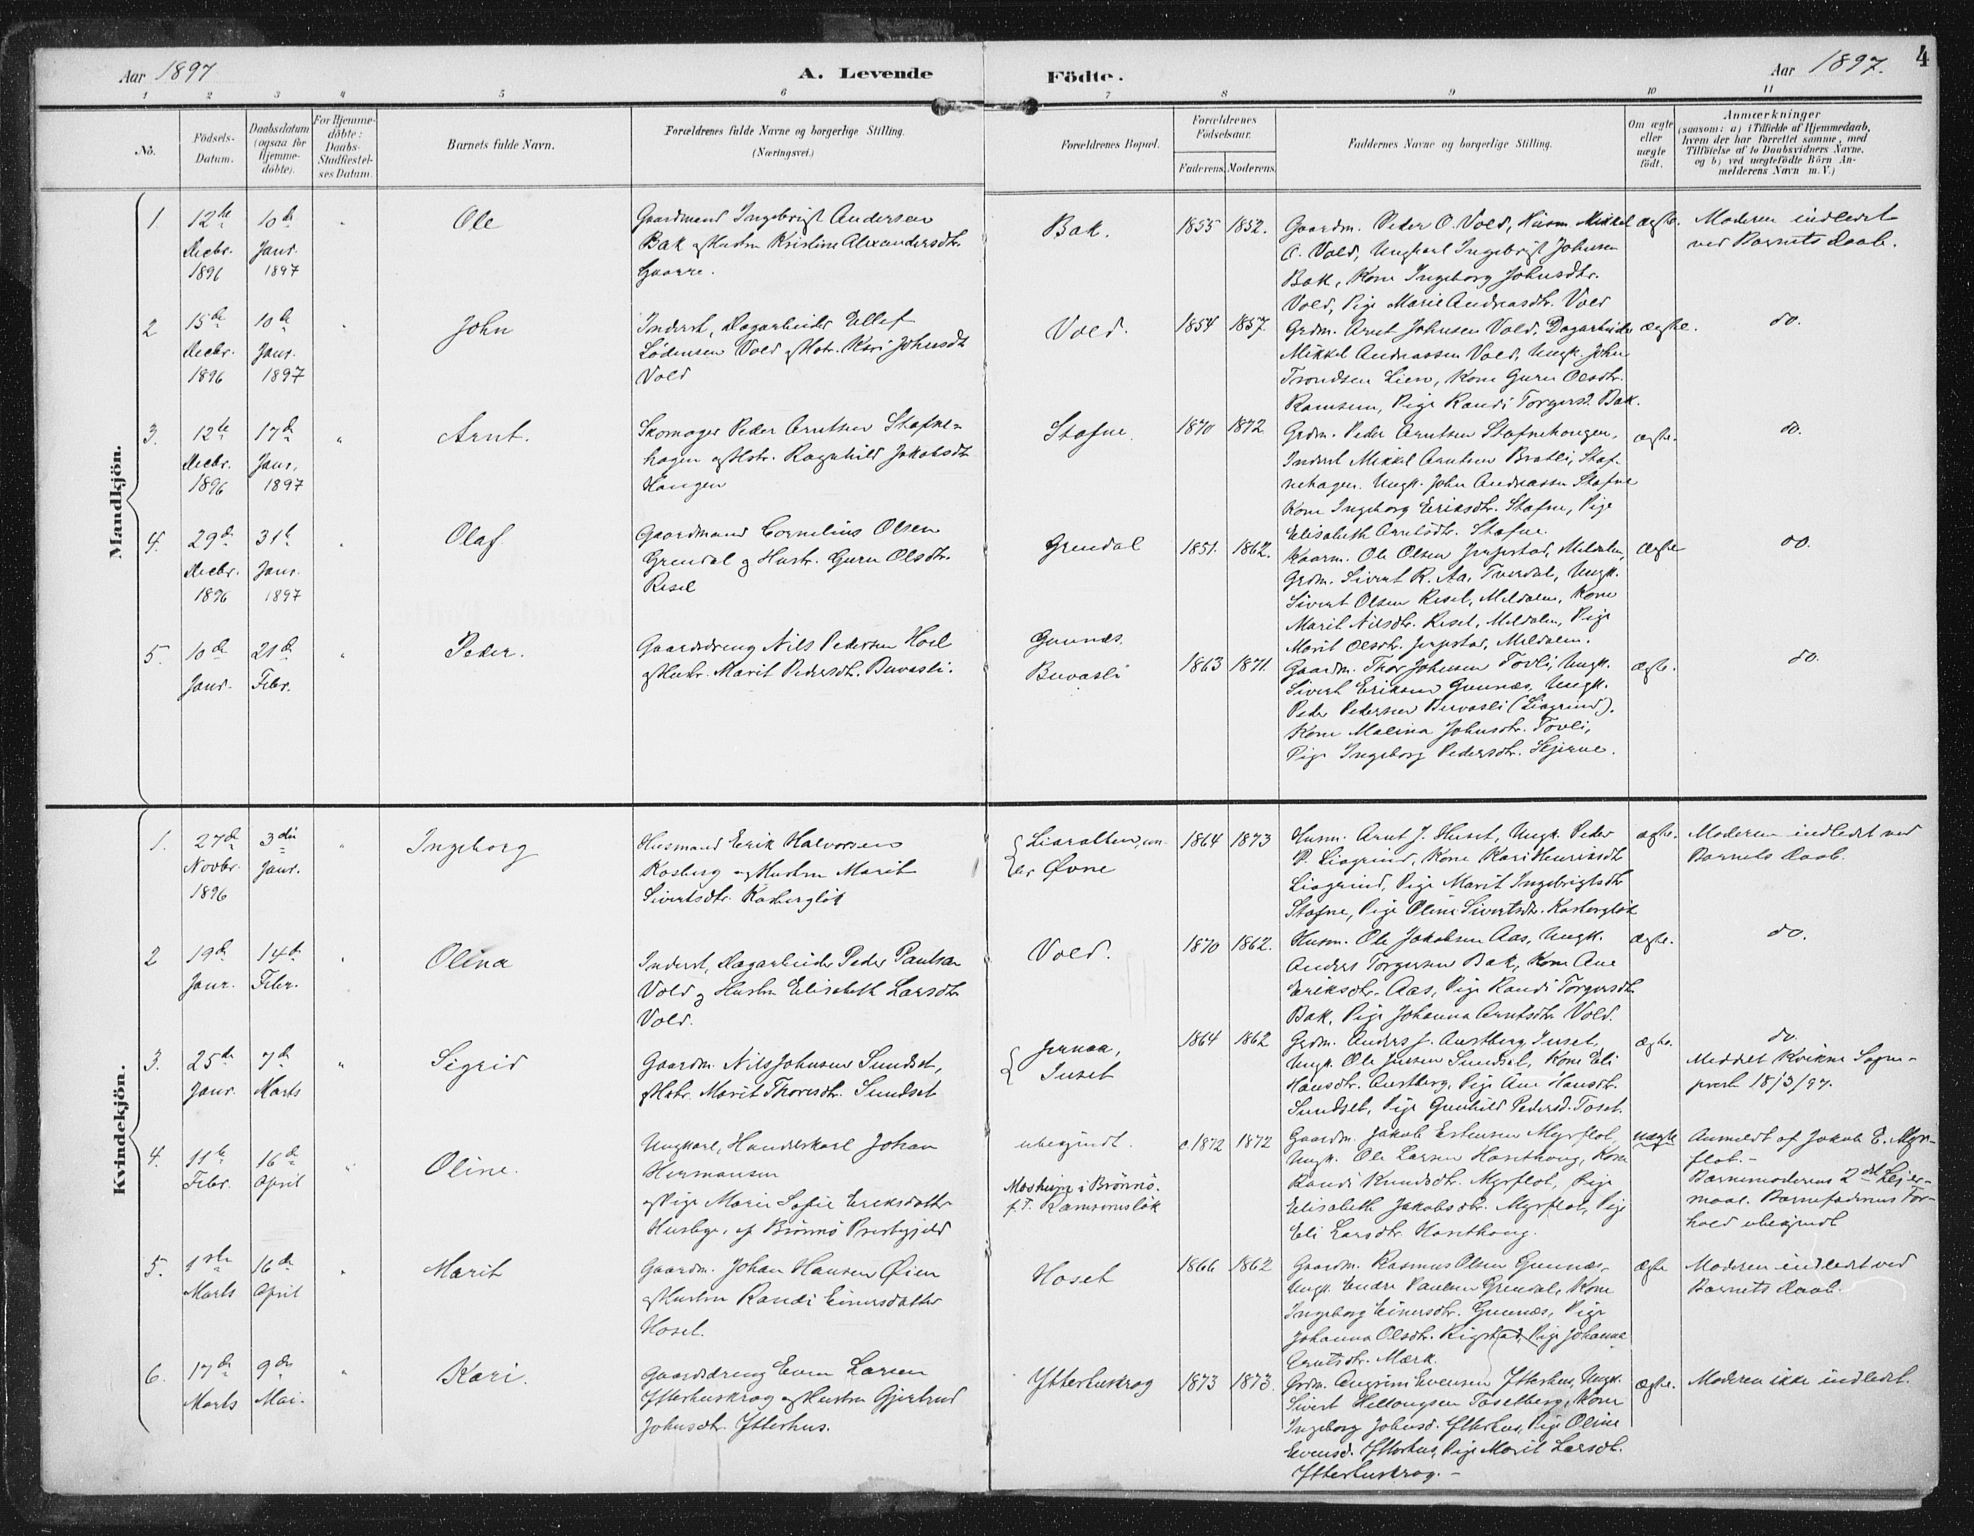 4
Aar 1897
A. Levende
Födte.
Aar 1897.
1 2 3 4 5 6 7 8 9 10 11
No.
Födsels-
Datum.
Daabsdatum
(ogsaa for
Hjemme-
döbte).
For Hjemme-
döbte:
Daabs-
Stadfæstel-
ses Datum.
Barnets fulde Navn.
Forældrenes fulde Navne og borgerlige Stilling.
(Næringsvei.)
Forældrenes Bopæl.
Forældrenes
Födselsaar.
Faderens. Moderens.
Faddernes Navne og borgerlige Stilling.
Om ægte
eller
uægte
födt.
Anmærkninger
(saasom: a) i Tilfælde af Hjemmedaab,
hvem der har forrettet samme, med
Tilföielse af to Daabsvidners Navne,
og b) ved uægtefödte Börn An-
melderens Navn m. V.)
Mandkjön.
1. 12te
Decbr.
1896
10de
Janr.
1897
"
Ole
Gaardmand Ingebrigt Andersen
Bak og Hustru Kristine Alexandersdtr.
Gaare.
Bak.
1855 1852.
Gaardm. Peder O. Vold, Husm. Mikkel
O. Vold, Ungkarl Ingebrigt Johnsen
Bak, Kone Ingeborg Johnsdtr.
Vold, Pige Marie Andreasdtr. Vold
ægte.
Moderen indledet
ved Barnets Daab.
2 15de
Decbr.
1896
10de
Janr.
1897
"
John
Inderst, Dagarbeider Ellef
Vold og Hstr. Kari Johnsdtr
Vold
Vold.
1854 1857.
Grdm. Arnt Johnsen Vold, Dagarbeider
Mikkel Andreassen Vold, Ungk. John
Trondsen Lien, Kone Guru Olsdtr.
Ramsem, Pige Randi Torgersd. Bak.
ægte.
do.
3. 12te
Decbr.
1896
17de
Janr.
1897
"
Arnt.
Skomager Peder Arntsen Stafne-
hagen og Hstr. Ragnhild Jakobsdtr
Haugen
Stafne.
1870 1872
Grdm. Peder Arntsen Stafnehaugen,
Inderst Mikkel Arntsen Bratli, Staf-
nehagen. Ungk. John Andreassen Stafne
Kone Ingeborg Eriksdtr. Stafne, Pige
Elisabeth Arntsdtr. Stafne.
ægte.
do.
4. 29de
Decbr.
1896
31te
Janr.
1897
"
Olaf
Gaardmand Cornelius Olsen
Grendal og Hustr. Guru Olsdtr.
Resel
Grendal
1851. 1862.
Kaarm. Ole Olsen Jerpstad, Meldalen,
Grdm. Sivert R. Aa, Tverdal, Ungk.
Sivert Olsen Resel, Meldalen, Kone
Marit Nilsdtr. Resel, Meldalen, Pige
Marit Olsdtr. Jerpstad, Meldalen.
ægte
do.
5. 10de
Janr.
21de
Febr.
"
Peder.
Gaarddreng Nils Pedersen Hoel
og Hustr. Marit Pedersdtr. Buvasli.
Gunnæs.
Buvasli
1863 1871.
Gaardm. Thor Johnsen Tovli, Ungk.
Sivert Eriksen Gunnæs, Ungk.
Peder Pedersen Buvasli (Liagrind).
Kone Malina Johnsdtr. Tovli,
Pige Ingeborg Pedersdtr. Skjerve.
ægte.
do.
Kvindekjön.
1. 27de
Novbr.
1896
3die
Janr.
"
Ingeborg
Husmand Erik Halvorsen
Kosberg og Hustru Marit
Sivertsdtr. Kosbergløk
Liaralten, un-
der Øvne
1864 1873
Husm. Arnt J. Huset, Ungk. Peder
P. Liagrind, Kone Kari Henriksdtr
Liagrind, Pige Marit Ingebrigtsdtr
Stafne, Pige Oline Sivertsdtr. Kosbergløk
ægte.
Moderen indledet ved
Barnets Daab.
2 19de
Janr.
14de
Febr.
"
Olina
Inderst, Dagarbeider Peder Paulsen
Vold og Hustru Elisabeth Larsdtr
Vold.
Vold.
1870 1862.
Husm. Ole Jakobsen Aas, Ungk.
Anders Torgersen Bak, Kone Ane
Eriksdtr. Aas, Pige Randi Torgersdtr
Bak, Pige Johanna Arntsdtr Vold.
ægte.
do.
3. 25de
Janr.
7de
Marts
"
Sigrid
Gaardm. Nils Johnsen Sundset,
og Hstr. Marit Thoresdtr. Sundset
Jernaa,
Inset
1864 1862
Grdm. Anders J. Austberg Inset,
Ungk. Ole Jensen Sundset, Kone Eli
Hansdtr. Austberg, Pige Ane Hansdtr.
Sundset, Pige Gunhild Pedersd. Toset.
ægte.
do.
Meddelt Kvikne Sogne-
prest 18/3/97.
4. 11te
Febr.
16de
April
"
Oline.
Ungkarl, Handelskarl Johan
Hermansen
og Pige Marie Sofie Eriksdatter
Husbye, af Brønnø Prestegjeld
ubekjendt.
Moshem i Brønnø.
f. T. Ramsemsløk
c 1872 1872
Gaardm. Jakob Estensen Myrflot,
Ungk. Ole Larsen Hosethaug, Kone
Randi Knudsdtr. Myrflot, Pige
Elisabeth Jakobsdtr. Myrflot, Pige
Eli Larsdtr. Hosethaug.
uægte
Anmeldt af Jakob E. Myr-
flot.-
Barnemoderens 2det Leier-
maal. Barnefaderens For-
hold ubekjendt
5. 1ste
Marts
16de
April
"
Marit
Gaardm. Johan Hansen Øien
og Hustru Randi Einersdatter
Hoset.
Hoset
1866 1862
Gaardm. Rasmus Olsen Gunnæs,
Ungk. Endre Paulsen Grendal, Kone
Ingeborg Einersdtr. Gunnæs, Pige
Johanna Olsdtr. Rigstad, Pige Johanna
Arntsdtr. Mærk.
ægte
Moderen indledet ved
Barnets Daab.
6. 17de
Marts
9de
Mai.
"
Kari.
Gaarddreng Even Larsen
Ytterhuskrog og Hustru Gjertrud
Johnsdtr. Ytterhus.
Ytterhuskrog
1873 1873.
Grdm. Angrim Evensen Ytterhus, Ungk.
Sivert Hallaugsen Tosetberg, Kone
Ingeborg Johnsd. Ytterhus, Pige Oline
Evensd. Ytterhus, Pige Marit Larsdtr.
Ytterhuskrog. -
ægte.
Moderen ikke indledet.